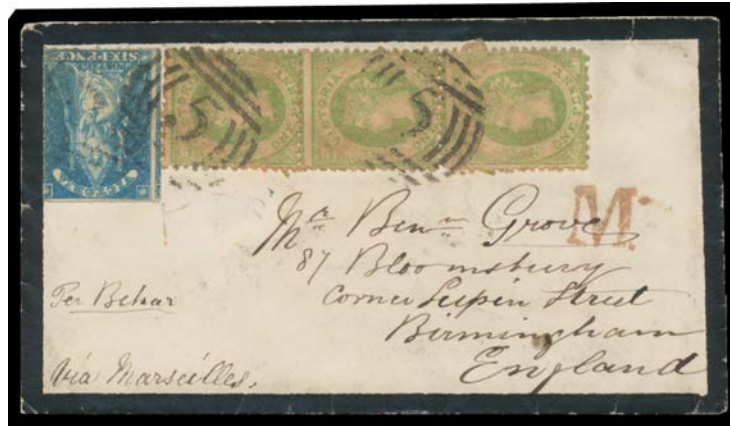 SIX PENCE
VICTORIA
VICTORIA
ONE PENNY
ONE
5
5
M
Mr Benn Grove
87 Bloomsbury
Corner Lupin Street
Birmingham
England
Per Behar
Via Marseilles.